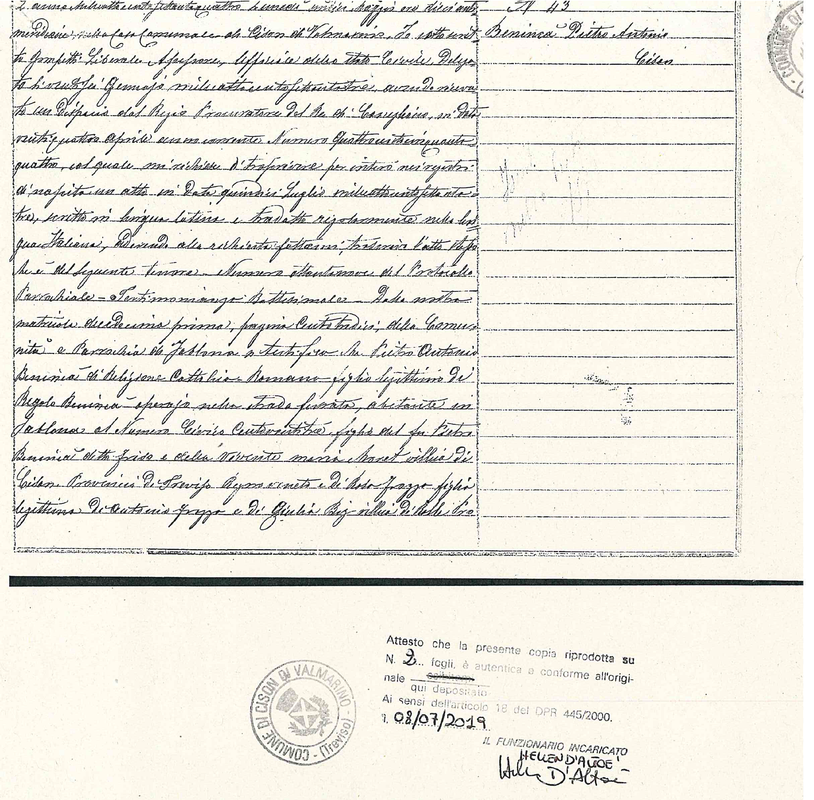 L'anno milleottocentosettantaquattro, lunedì undici Maggio ore dieci anti
meridiane, nella Casa Comunale di Cison di Valmarino. Io sotto scrit
to Liberale Assessore, Uffiziale dello Stato Civile, Delega
to li ventisei Gennajo milleottocentosettantatre avendo ricevu
to un Dispaccio dal Regio Procuratore del Re di Conegliano, in data
ventiquattro Aprile anno corrente Numero Quattrocentocinquanta
quattro, col quale mi richiede di trascrivere per intero nei registri
di nascita un atto in Data quindici Luglio milleottocentosettanta
tre, scritto in lingua latina e tradotto regolarmente nella lin
gua Italiana, aderendo alla richiesta fattami, trascrivo l'atto stesso
che è del seguente tenore - Numero ottantanove del Protocollo
Parrochiale - Testimonianza Battesimale - Dalla nostra
matricola decima prima, pagina Centotredici, della Comu
nità e Parrochia di Jablona si testifica che Pietro Antonio
Benincà di Religione Cattolica Romana figlio legittimo di
Regolo Benincà operajo nella strada ferrata, abitante in
Jablona al Numero Civico Centoventitrè, figlio del fu Pietro
Benincà detto friso e della vivente maria Moret villici di
Cison Provincia di Treviso Regno Veneto e di Rosa Frazzo figlia
legittima di Antonio Frazzo e di Giulia Bez villici di
N 43
Benincà Pietro Antonio
Cison
Attesto che la presente copia riprodotta su
N. 2 fogli, è autentica a conforme all'origi-
nale
qui depositato
Ai sensi dell'articolo 18 del DPR 445/2000.
lì, 08/07/2019
IL FUNZIONARIO INCARICATO
HELEN D'ALTOE'
Helen D'Altoè
COMUNE DI CISON DI VALMARINO
(Treviso)
COMUNE DI